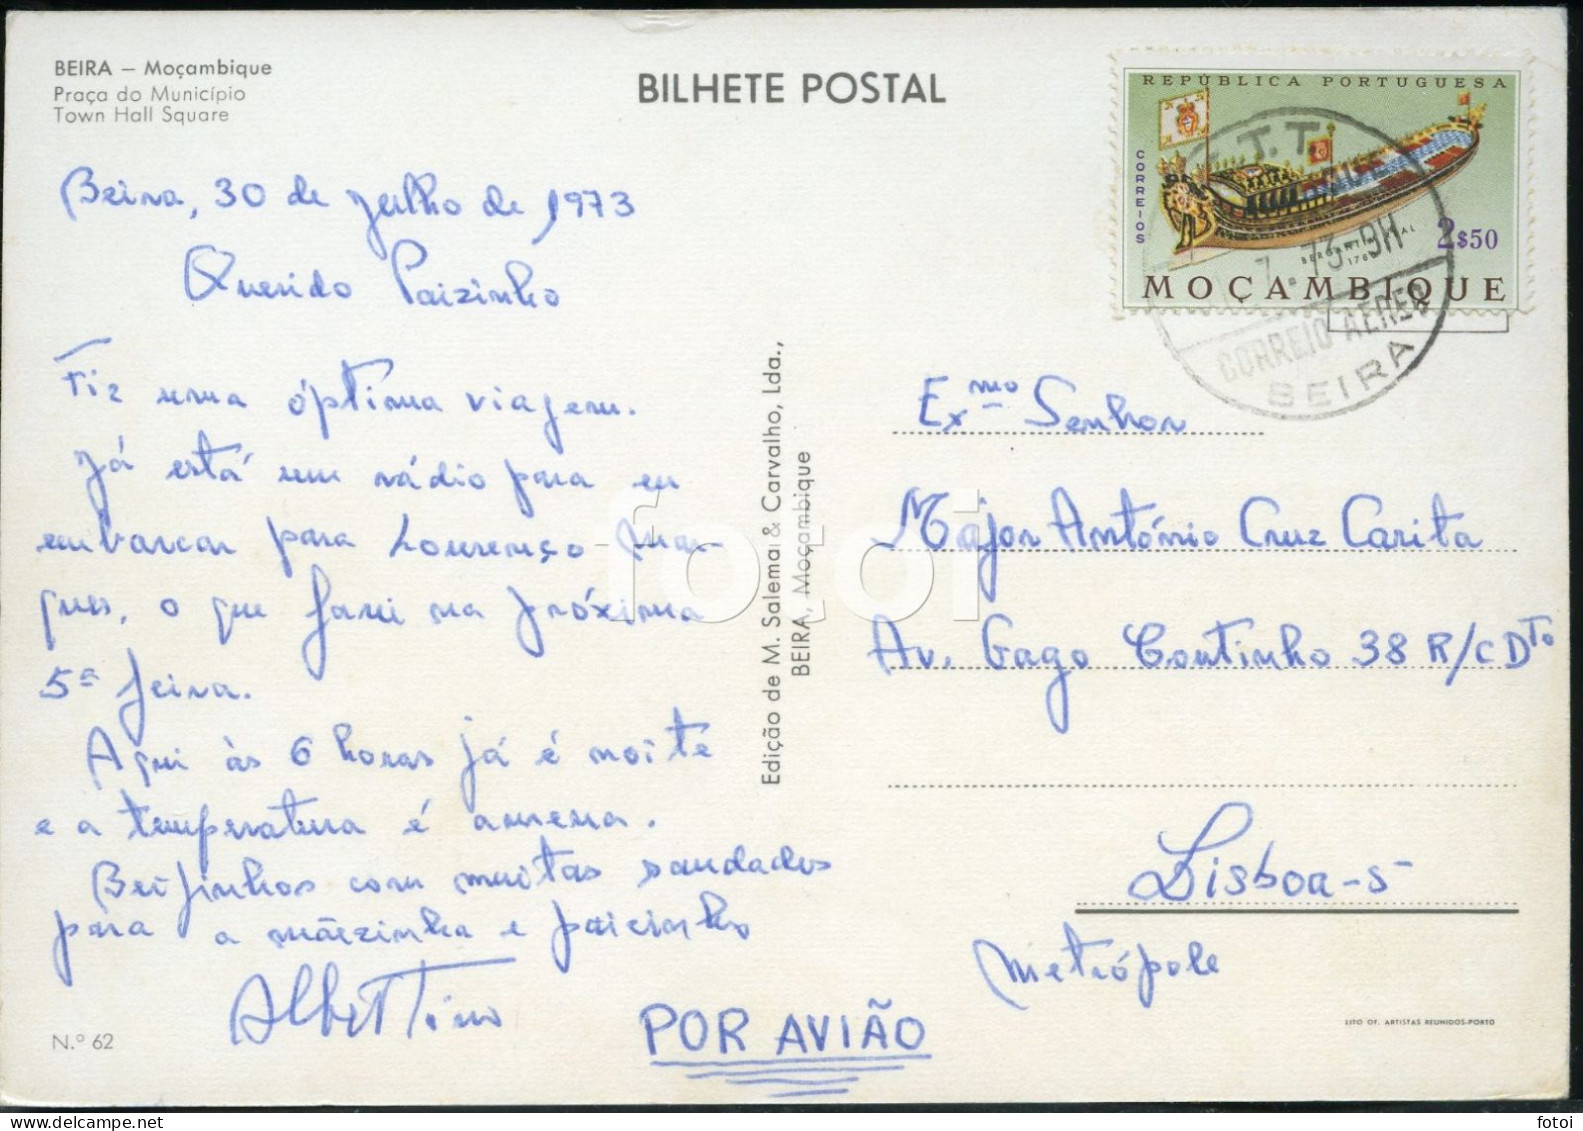 BEIRA – Moçambique
Praça do Município
Town Hall Square
BILHETE POSTAL
REPÚBLICA PORTUGUESA
CORREIOS
2$50
MOÇAMBIQUE
C.T.T.
7.73-9H
CORREIO AEREO
BEIRA
Beira, 30 de julho de 1973
Querido Paizinho
Fiz uma óptima viagem.
Já está um rádio para eu
embarcar para Lourenço Mar-
ques, o que farei na próxima
5ª feira.
Aqui às 6 horas já é noite
e a temperatura é amena.
Beijinhos com muitas saudades
para a mãezinha e paizinho
Albertino
N.º 62
Edição de M. Salema & Carvalho, Lda.,
BEIRA, Moçambique
Exmo Senhor
Major António Cruz Carita
Av. Gago Coutinho 38 R/C Dto
Lisboa-5
Metrópole
POR AVIÃO
LITO OF. ARTISTAS REUNIDOS-PORTO
fotoi
fotoi